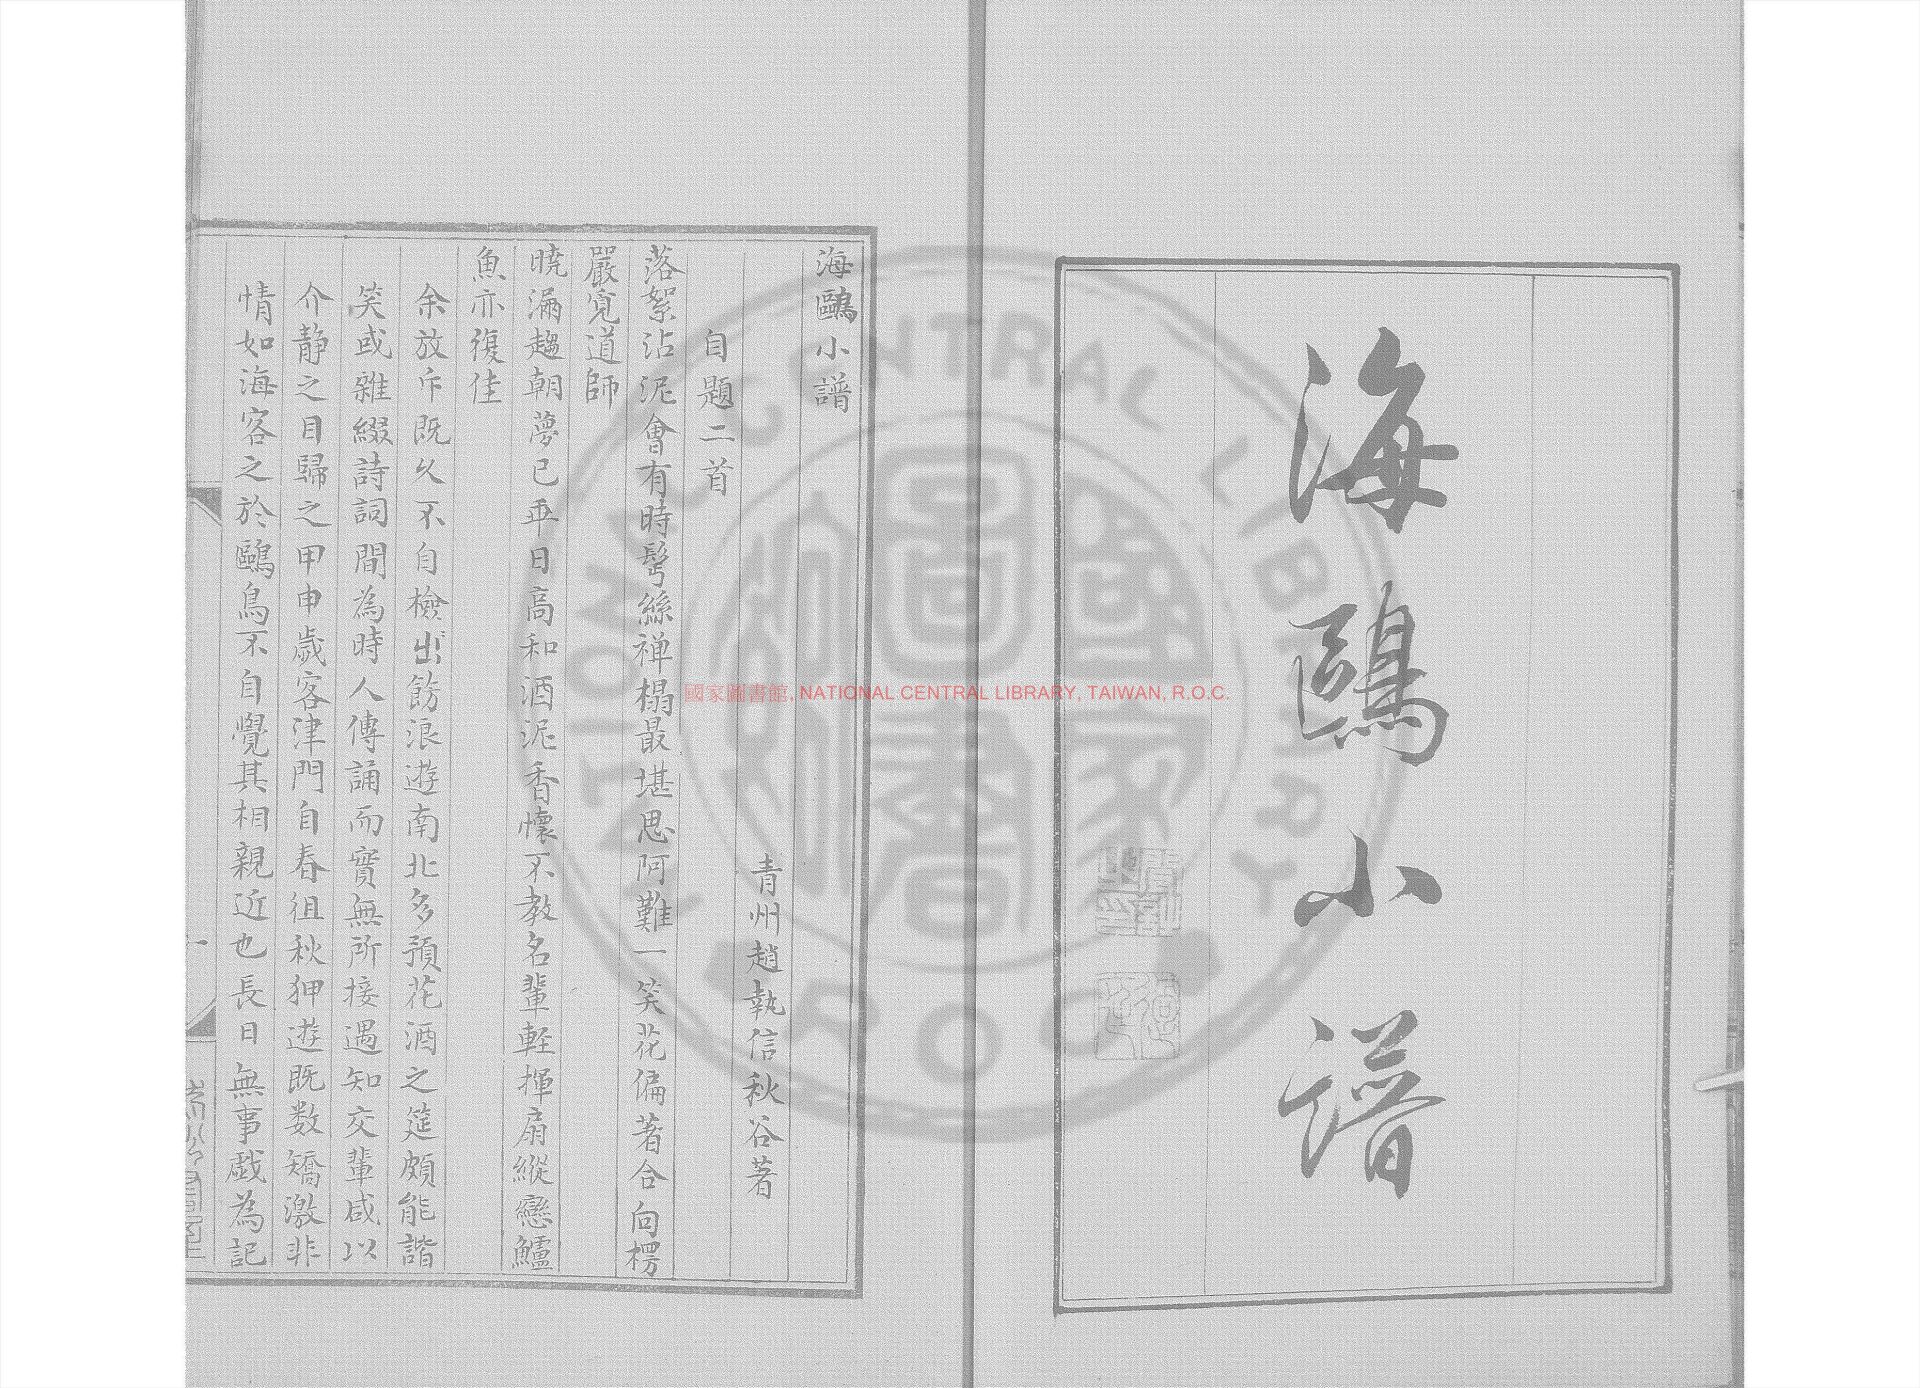 海鷗小譜
海鷗小譜
青州趙執信秋谷著
自題二首
落絮沾泥會有時髩絲禅榻最堪思阿難一笑花偏著合向楞
嚴覓道師
曉漏趨朝夢已平日高和酒泥香懷不教名輩輕揮扇縱戀鱸
魚亦復佳
余放斥既久不自檢出餝浪遊南北多預花酒之筵頗能諧
笑或雜綴詩詞間為時人傳誦而實無所接遇知交輩咸以
介静之目歸之甲申歲客津門自春徂秋狎遊既数矯激非
情如海客之於鷗鳥不自覺其相親近也長日無事戯為記
一
國家圖書館, NATIONAL CENTRAL LIBRARY, TAIWAN, R.O.C.
NATIONAL CENTRAL LIBRARY
ROC
國家圖書館